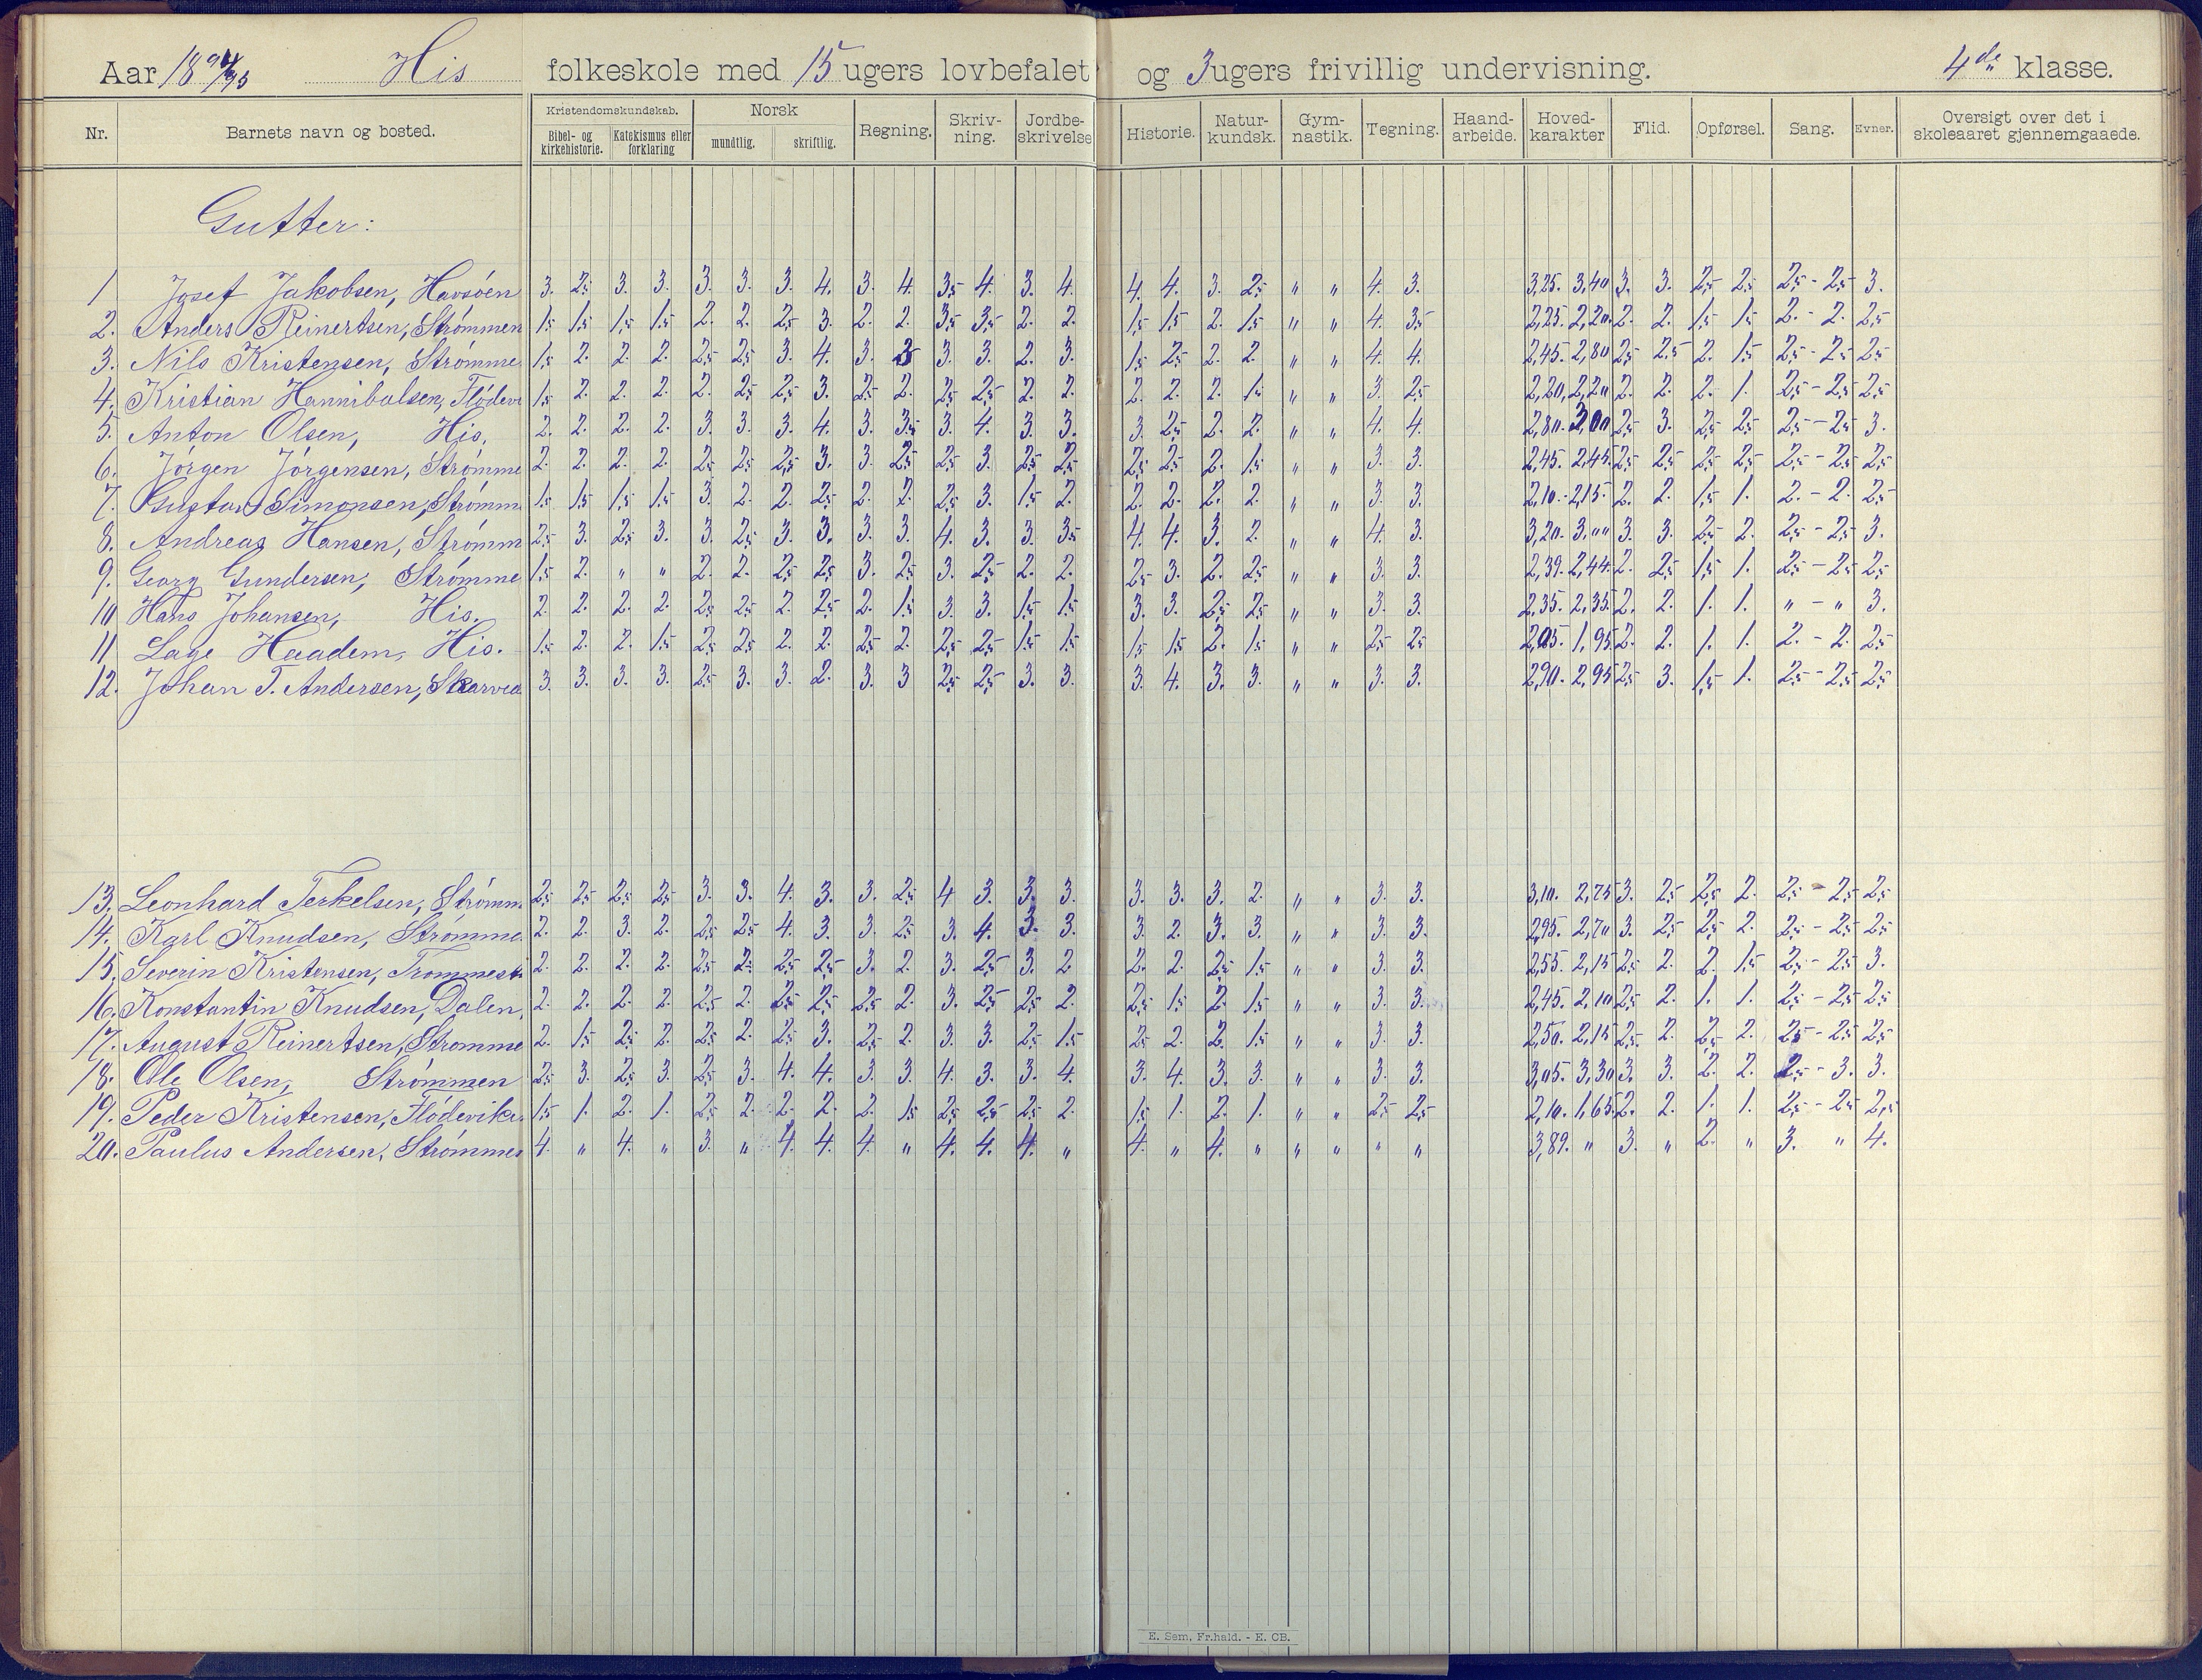 Aar 1894/95 His folkeskole med 15 ugers lovbefalet og 3 ugers frivillig undervisning. 4de klasse.
Nr. Barnets navn og bosted. Kristendomskundskab. Bibel- og kirkehistorie. Katekismus eller forklaring Norsk mundtlig. skriftlig. Regning. Skriv-ning. Jordbe-skrivelse Historie. Natur-kundsk. Gym-nastik. Tegning. Haand-arbeide. Hoved-karakter Flid. Opførsel. Sang. Evner. Oversigt over det i skoleaaret gjennemgaaede.
Gutter:
1 Josef Jakobsen, Havsöen 3. 2,5 3. 3. 3. 3. 3. 4. 3. 4. 3,5 4. 3. 4. 4. 4. 3. 2,5 " " 4. 3. 3,25. 3,40 3. 3. 2,5 2,5 2,5 - 2,5 3.
2. Anders Reinertsen, Strömmen 1,5 1,5 1,5 1,5 2. 2. 2,5 3. 2. 2. 3,5 3,5 2. 2. 1,5 1,5 2. 1,5 " " 4. 3,5 2,25. 2,20. 2. 2. 1,5 1,5 2. - 2. 2,5
3. Nils Kristensen, Strömme 1,5 2. 2. 2. 2,5 2,5 3. 4. 3. 3. 3. 2. 3. 1,5 2,5 2. 2. " " 4. 4. 2,45. 2,80 2,5 2,5 2. 1,5 2,5 - 2,5 2,5
4. Kristian Hannibalsen, Flödevi 1,5 2. 2. 2. 2. 2,5 2,5 3. 2,5 2. 2,5 2,5 2. 2. 2. 2. 2. 1,5 " " 3. 2,5 2,20, 2,20 2. 2. 2. 1. 2,5 - 2,5 2,5
5. Anton Olsen, His. 2. 2. 2. 2. 3. 3. 3. 4. 3. 3,5 3. 4. 3. 3. 3. 2,5 2. 2. " " 4. 4. 2,80. 3,00 2,5 3. 2,5 2,5 2,5 - 2,5 3.
6. Jörgen Jörgensen, Strömme 2. 2. 2. 2. 2,5 2,5 2,5 3. 3. 2,5 2,5 3. 2,5 2,5 2,5 2,5 2. 1,5 " " 3. 3. 2,45. 2,45. 2,5 2,5 2,5 2,5 2,5 - 2,5 2,5
7. Gustav Simonsen, Strömm 1,5 1,5 1,5 1,5 3. 2. 2. 2,5 2. 2. 2,5 3. 1,5 2. 2. 2. 2. 2. " " 3. 3. 2,10. - 2,15. 2. 2. 1,5 1. 2. - 2. 2,5
8. Andreas Hansen, Strömm 2,5 3. 2,5 3. 3. 2,5 3. 3. 3. 3. 4. 3. 3. 3,5 4. 4. 3. 2. " " 4. 3. 3,20. 3,00 3. 3. 2,5 2. 2,5 - 2,5 3.
9. Georg Gundersen, Strömme 1,5 2. " " 2. 2. 2,5 2,5 3. 2,5 3. 2,5 2. 2. 2,5 3. 2. 2,5 " " 3. 3. 2,39. 2,44. 2. 2,5 1,5 1. 2,5 - 2,5 2,5
10 Hans Johansen, His. 2. 2. 2. 2. 2,5 2,5 2. 2,5 2. 1,5 3. 3. 1,5 1,5 3. 3. 2,5 2,5 " " 3. 3. 2,35. 2,35. 2. 2. 1. 1. " - " 3.
11 Lage Haadem, His. 1,5 2. 2. 1,5 2,5 2,5 2. 2. 2,5 2. 2,5 2,5 1,5 1,5 1,5 1,5 2. 1,5 " " 2,5 2,5 2,05. 1,95 2. 2. 1. 1. 2. - 2. 2,5
12. Johan T. Andersen, Skarved 3. 3. 3. 3. 2,5 3. 3. 2. 3. 3 2,5 2,5 3. 3. 3. 4. 3. 3. " " 3. 3. 2,90. 2,95 2,5 3. 1,5 1. 2,5 - 2,5 2,5
13. Leonhard Terkelsen, Strömm 2,5 2,5 2,5 2,5 3. 3. 4. 3. 3. 2,5 4 3. 3. 3. 3. 3. 3. 2. " " 3. 3. 3,10. 2,75 3. 2,5 2,5 2. 2,5 - 2,5 2,5
14. Karl Knudsen, Stromme 2. 2. 3. 2. 2,5 2,5 4. 3. 3. 2,5 3. 4. 3. 3. 3. 2. 3. 3. " " 3. 3. 2,95. 2,70 3. 2,5 2,5 2. 2,5 - 2,5 2,5
15. Severin Kristensen, Trommest 2. 2. 2. 2. 2,5 2,5 2,5 2,5 3. 2. 3. 2,5 3. 2 2. 2. 2,5 1,5 " " 3. 3. 2,55. 2,15 2,5 2. 2. 1,5 2,5 - 2,5 3.
16. Konstantin Knudsen, Dalen, 2. 2. 2. 2. 2,5 2. 2,5 2,5 2,5 2. 3. 2,5 2,5 2. 2,5 1,5 2. 1,5 " " 3. 3. 2,45. 2,10 2,5 2. 1. 1. 2,5 - 2,5 2,5
17. August Reinertsen, Stromme 2. 1,5 2,5 2. 2,5 2. 2,5 3. 2,5 2. 3. 3. 2,5 1,5 2,5 2. 2. 1,5 " " 3. 3. 2,50. 2,15 2,5 2. 2,5 2. 2,5 - 2,5 2,5
18. Ole Olsen, Strömmen 2,5 3. 2,5 3. 2,5 3. 4. 4. 3. 3. 4. 3. 3. 4. 3. 4. 3. 3. " " 3. 3. 3,05. 3,30 3. 3. 2. 2. 2,5 - 3. 3.
19. Peder Kristensen, Flödevike 1,5 1. 2. 1. 2,5 2. 2. 2. 2. 1,5 2,5 2,5 2,5 2. 1,5 1. 2. 1. " " 2,5 2,5 2,10. 1,65. 2. 2. 1. 1. 2,5 - 2,5 2,5
20. Paulus Andersen, Strömmen 4. " 4. " 3. " 4. 4. 4. " 4. 4. 4. " 4. " 4. " " " " " 3,89. " 3. " 2. " 3. " 4.
E. Sem, Fr.hald. - E. CB.